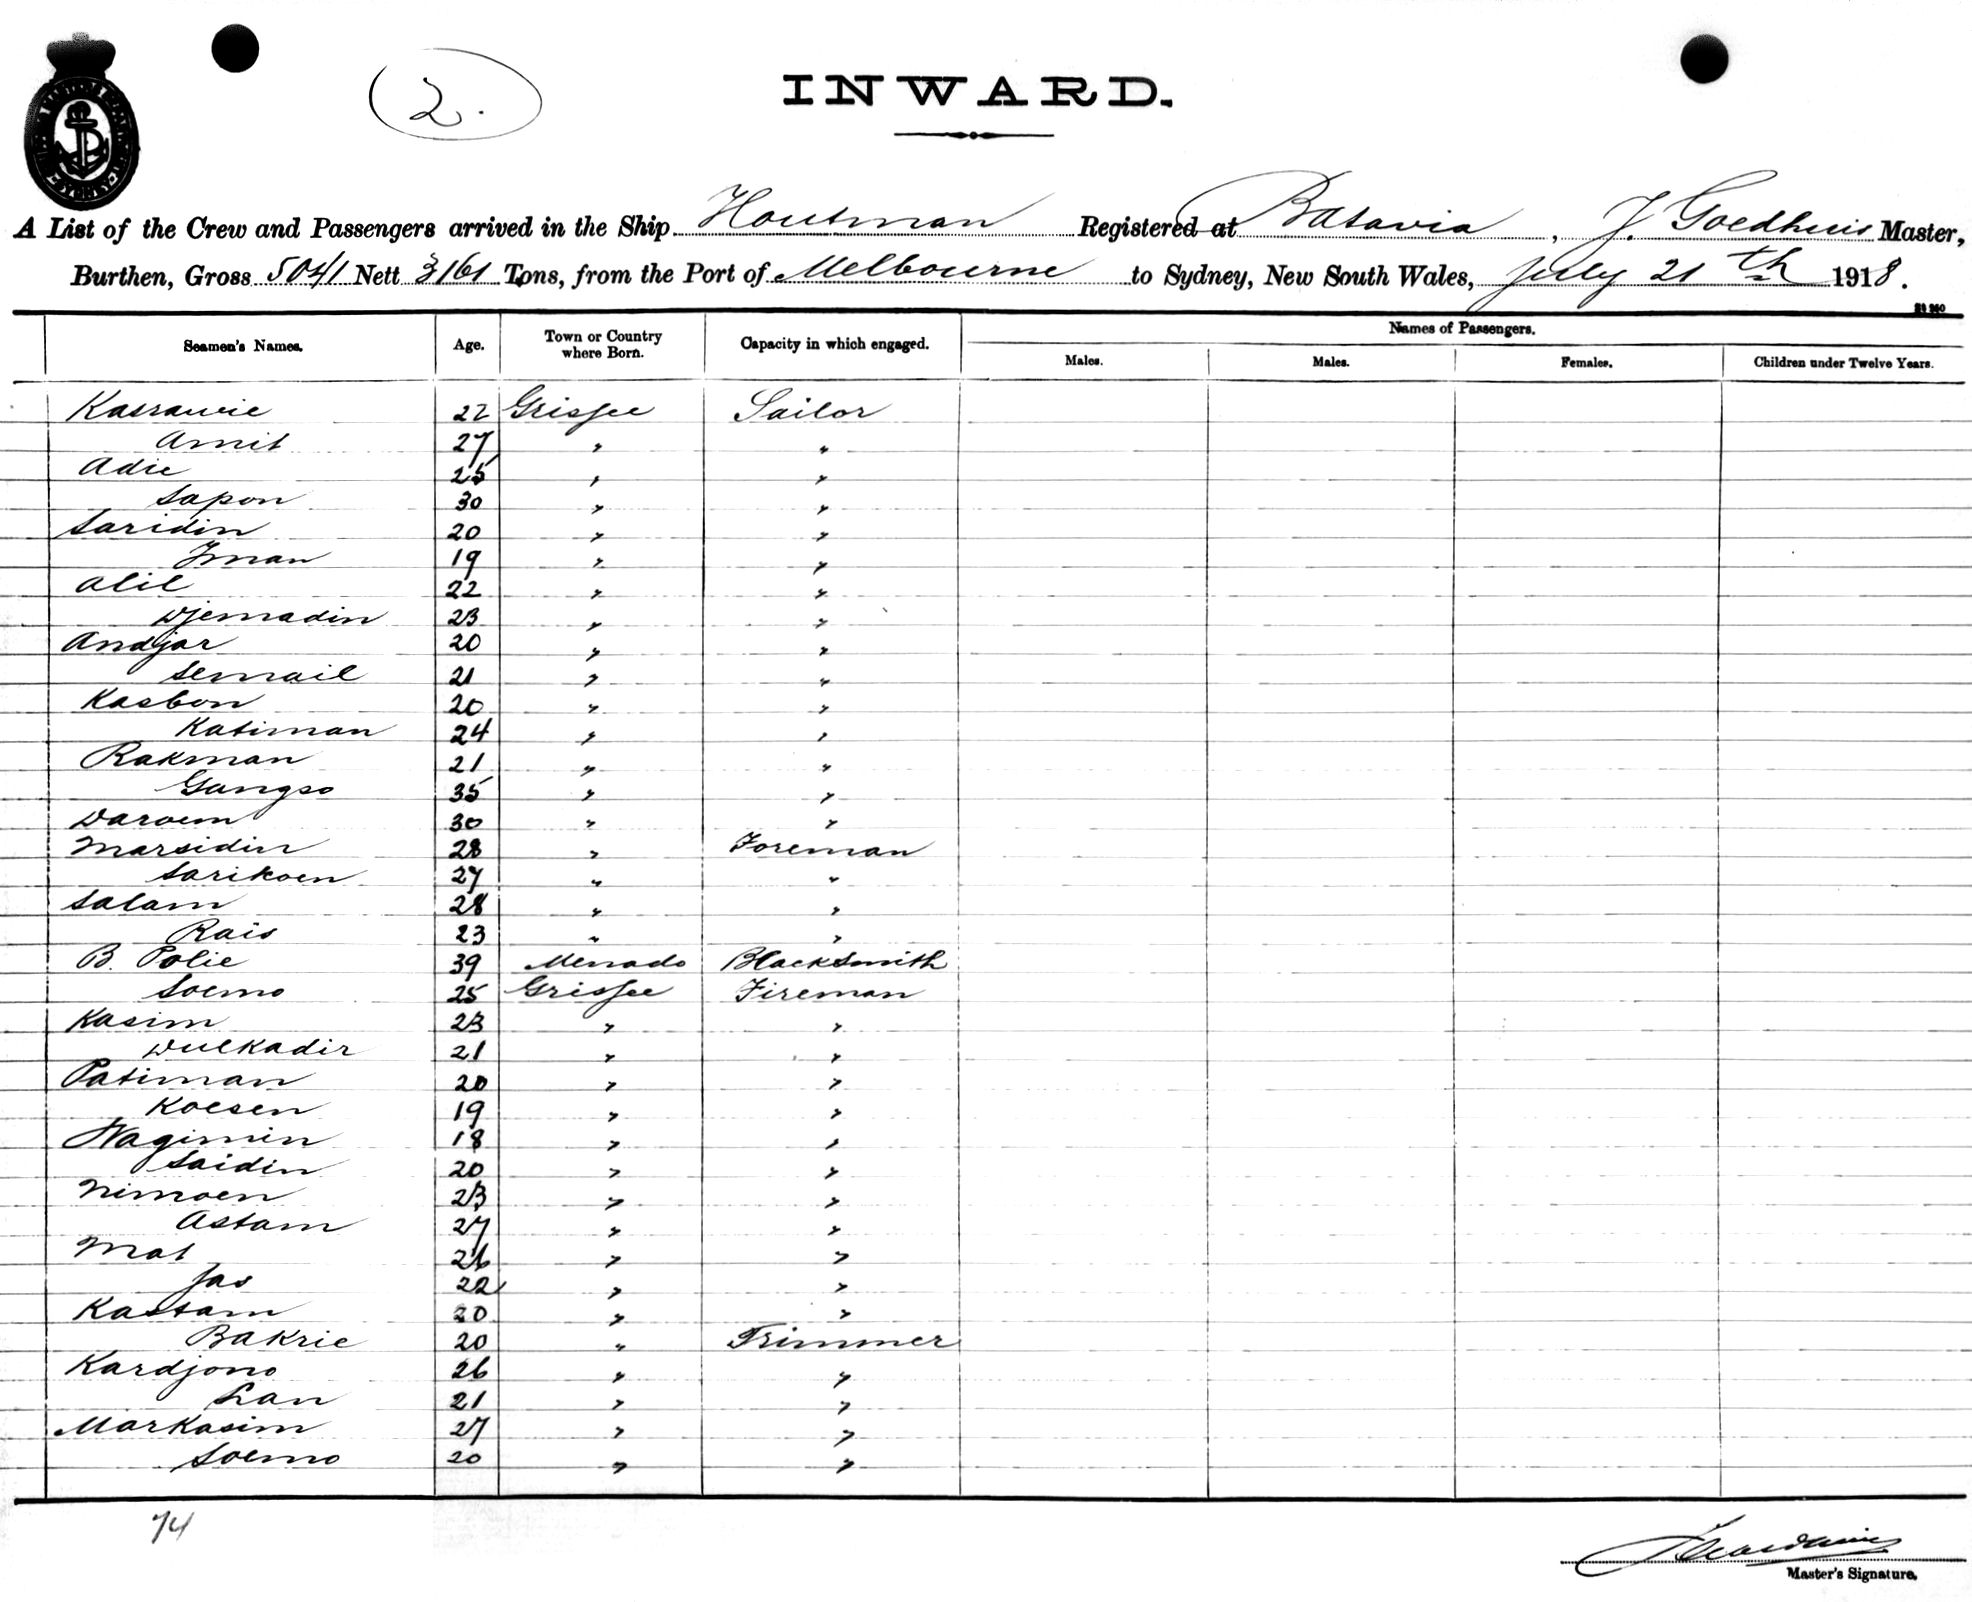 2.
INWARD.
A List of the Crew and Passengers arrived in the Ship Houtman Registered at Batavia, J. Goedhuis Master,
Burthen, Gross 5041 Nett 3161 Tons, from the Port of Melbourne to Sydney, New South Wales, July 21th 1918.
Seamen's Names. Age. Town or Country where Born. Capacity in which engaged. Names of Passengers.
Males. Males. Females. Children under Twelve Years.
Kassawie 22 Grissee Sailor
Amit 27 " "
Adie 25 " "
Sapon 30 " "
Saridin 20 " "
Iman 19 " "
Alil 22 " "
Djemadin 23 " "
Andjar 20 " "
Semail 21 " "
Kasbon 20 " "
Katiman 24 " "
Rakman 21 " "
Gangso 35 " "
Daroem 30 " "
Marsidin 28 " Foreman
Sarikoen 27 " "
Salam 28 " "
Rais 23 " "
B. Polie 39 Menado Blacksmith
Soemo 25 Grissee Fireman
Kasim 23 " "
Dulkadir 21 " "
Patiman 20 " "
Koesen 19 " "
Wagimin 18 " "
Saidin 20 " "
Nimoen 23 " "
Astam 27 " "
Mat 26 " "
Jas 22 " "
Kastam 20 " "
Bakrie 20 " Trimmer
Kardjono 26 " "
Lan 21 " "
Markasim 27 " "
Soemo 20 " "
74
J. Goedhuis
Master's Signature.